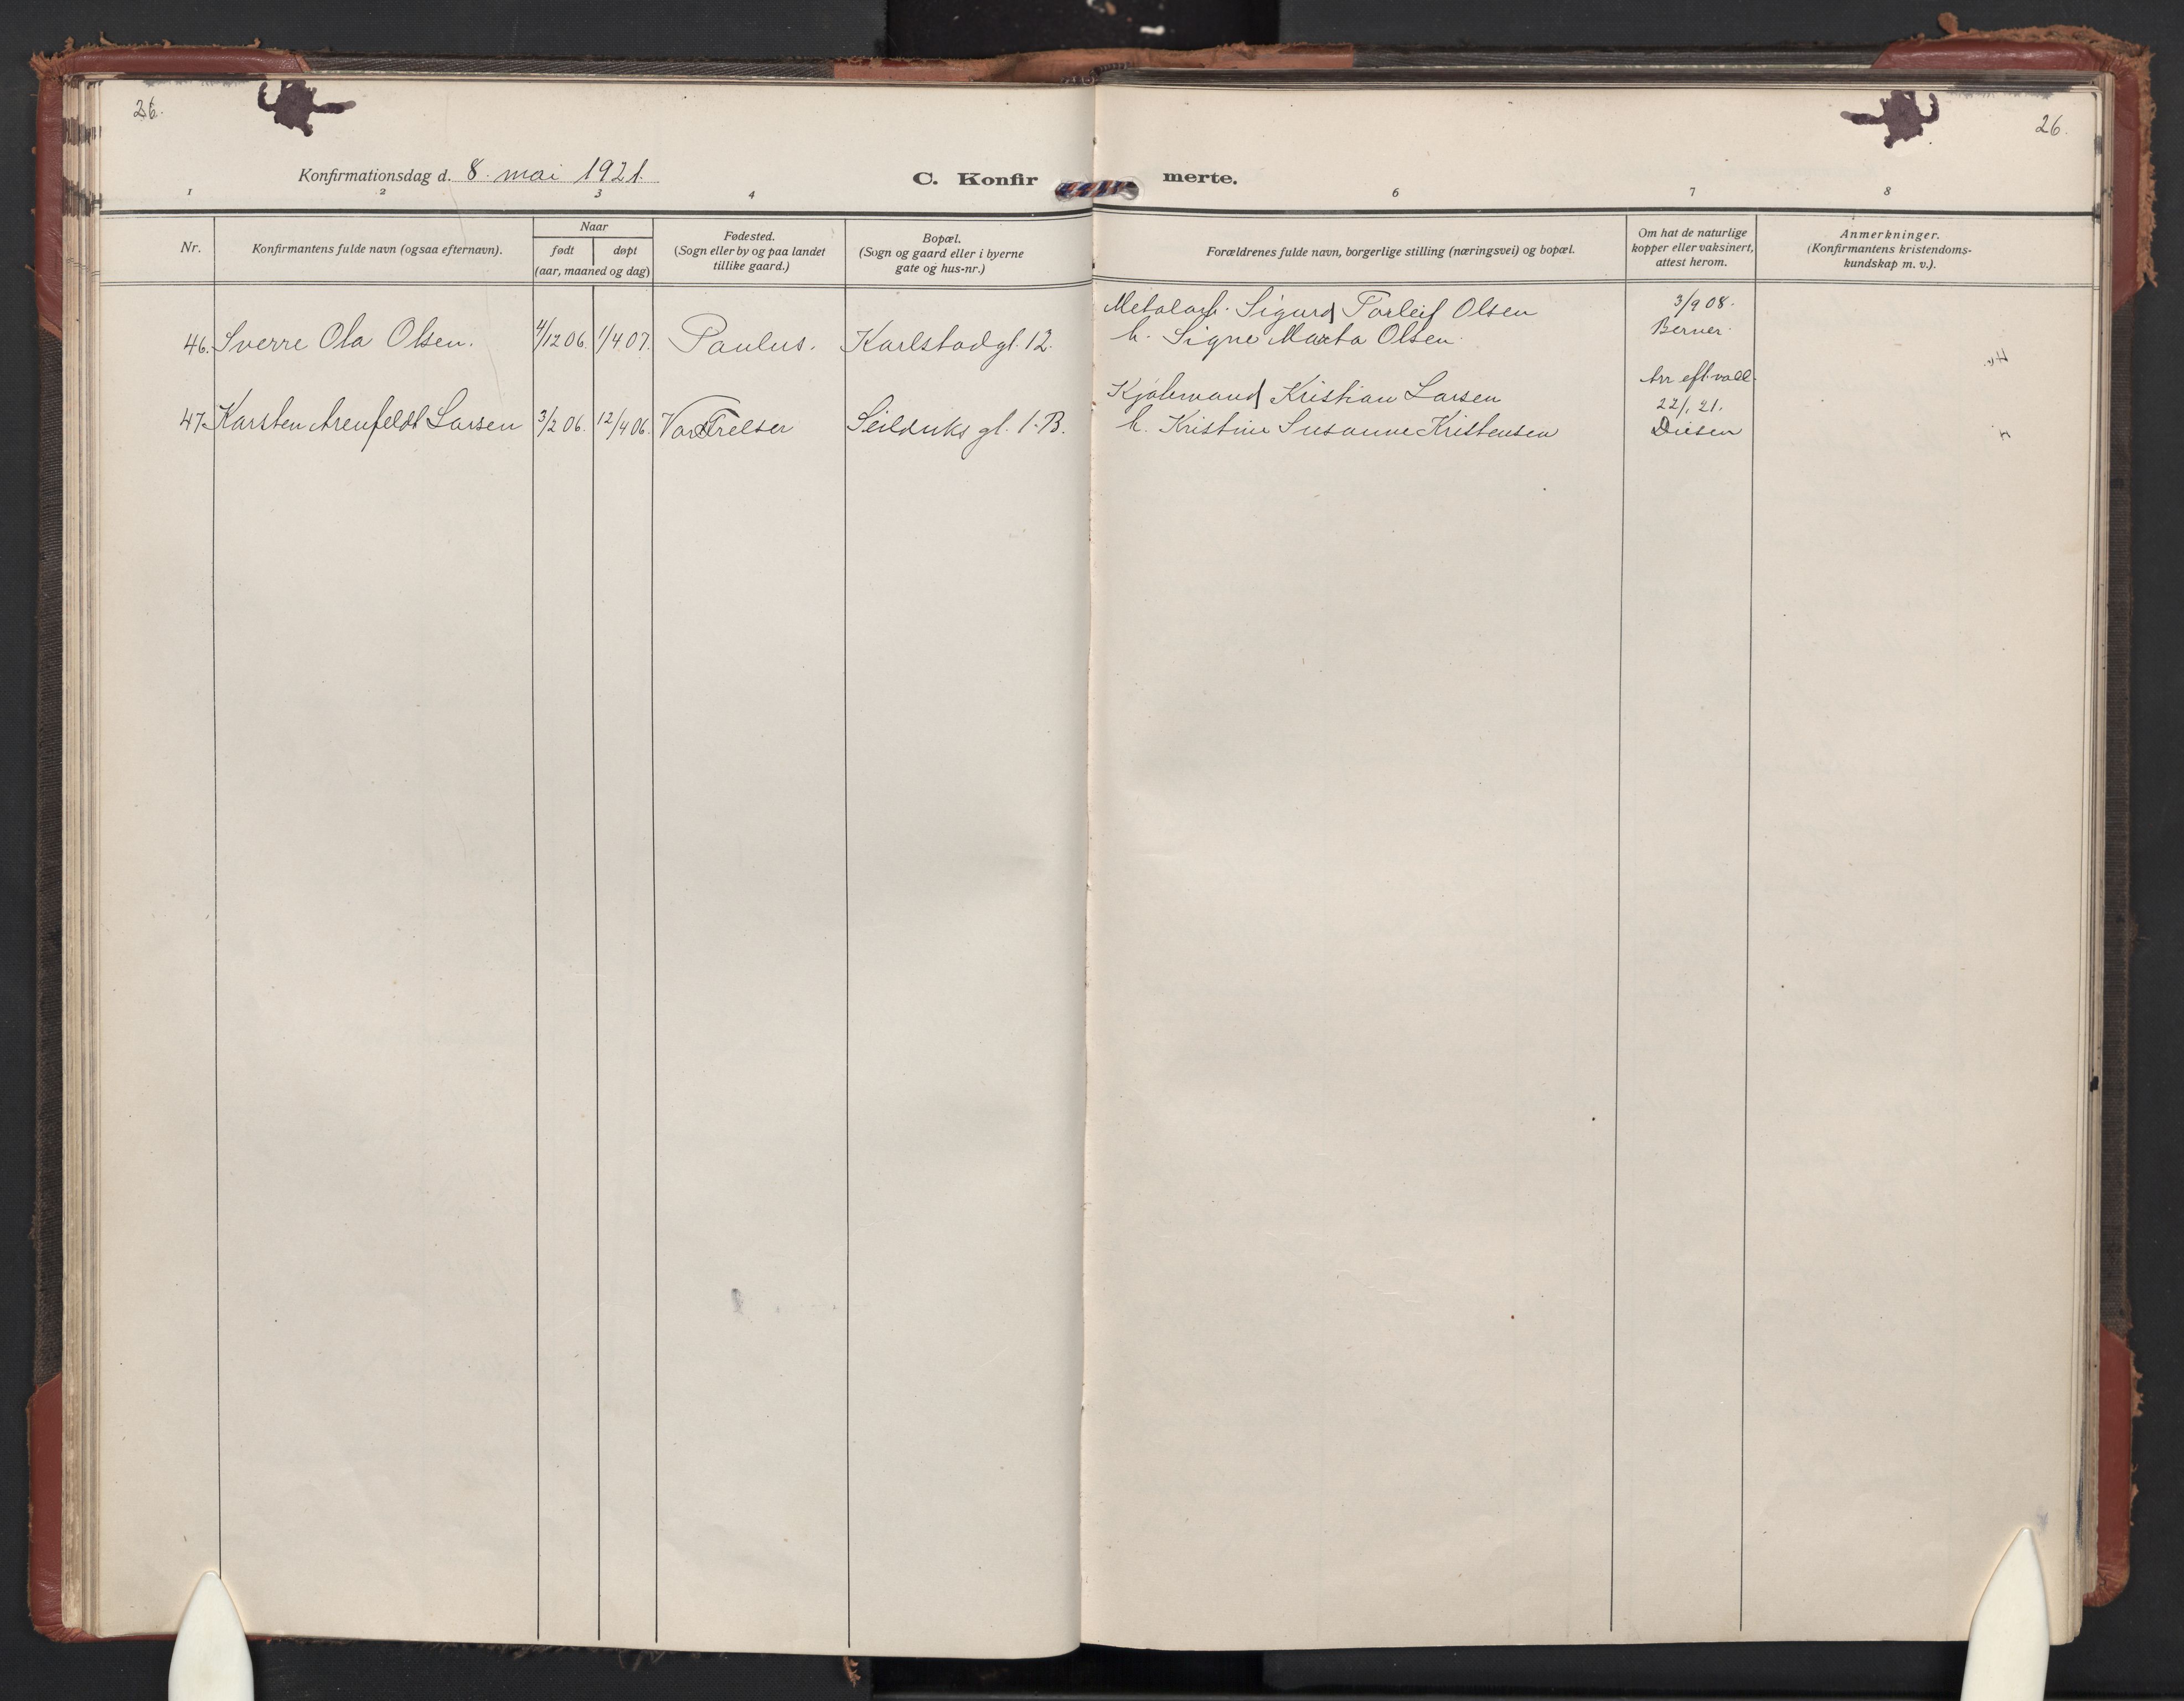 26.
26.
Konfirmationsdag d. 8. mai 1921.
C. Konfir merte.
1 2 3 4 6 7 8
Nr.
Konfirmantens fulde navn (ogsaa efternavn).
Naar
født døpt
(aar, maaned og dag)
Fødested.
(Sogn eller by og paa landet
tillike gaard.)
Bopæl.
(Sogn og gaard eller i byerne
gate og hus-nr.)
Forældrenes fulde navn, borgerlige stilling (næringsvei) og bopæl.
Om hat de naturlige
kopper eller vaksinert,
attest herom.
Anmerkninger.
(Konfirmantens kristendoms-
kundskap m. v.).
46. Sverre Ola Olsen. 4/12 06. 1/4 07. Paulus. Karlstadgt. 12.
Metalarb. Sigurd Torleif Olsen
h. Signe Marta Olsen.
3/9 08.
Berner.
47. Karsten Arenfeldt Larsen 3/2 06. 12/4 06. Vor Frelser Seilduks gt. 1. B.
Kjølemand Kristian Larsen
h. Kristine Susanne Kristensen
Arr eft. vacc.
22/1 21.
Diesen